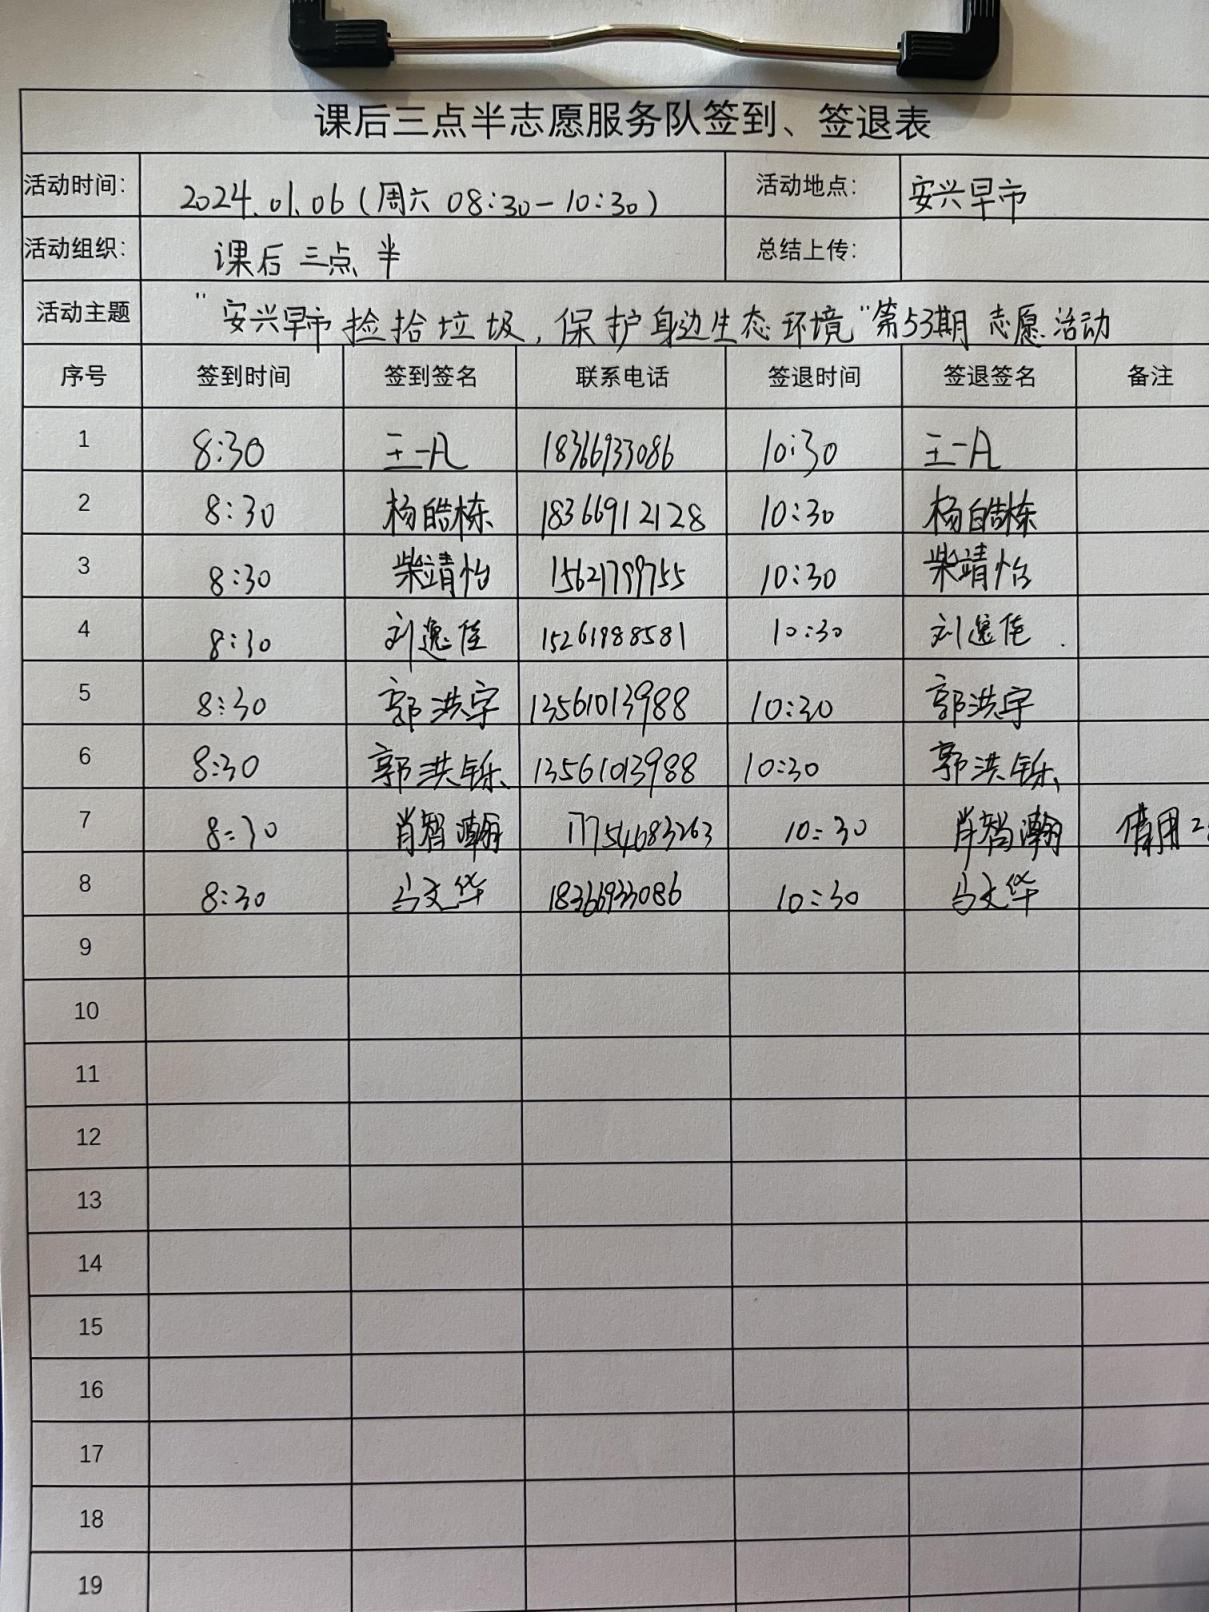 课后三点半志愿服务队签到、签退表
活动时间： 2024.01.06（周六 08:30-10:30） 活动地点： 安兴早市
活动组织： 课后三点半 总结上传：
活动主题 “安兴早市捡拾垃圾，保护身边生态环境”第53期志愿活动
序号 签到时间 签到签名 联系电话 签退时间 签退签名 备注
1 8:30 王一凡 18366933086 10:30 王一凡
2 8:30 杨皓栋 18366912128 10:30 杨皓栋
3 8:30 柴靖怡 15621799755 10:30 柴靖怡
4 8:30 刘逸佳 15261988581 10:30 刘逸佳
5 8:30 郭洪宇 13561013988 10:30 郭洪宇
6 8:30 郭洪铄 13561013988 10:30 郭洪铄
7 8:30 肖智瀚 17754683263 10:30 肖智瀚 借用
8 8:30 马文华 18366933086 10:30 马文华
9
10
11
12
13
14
15
16
17
18
19